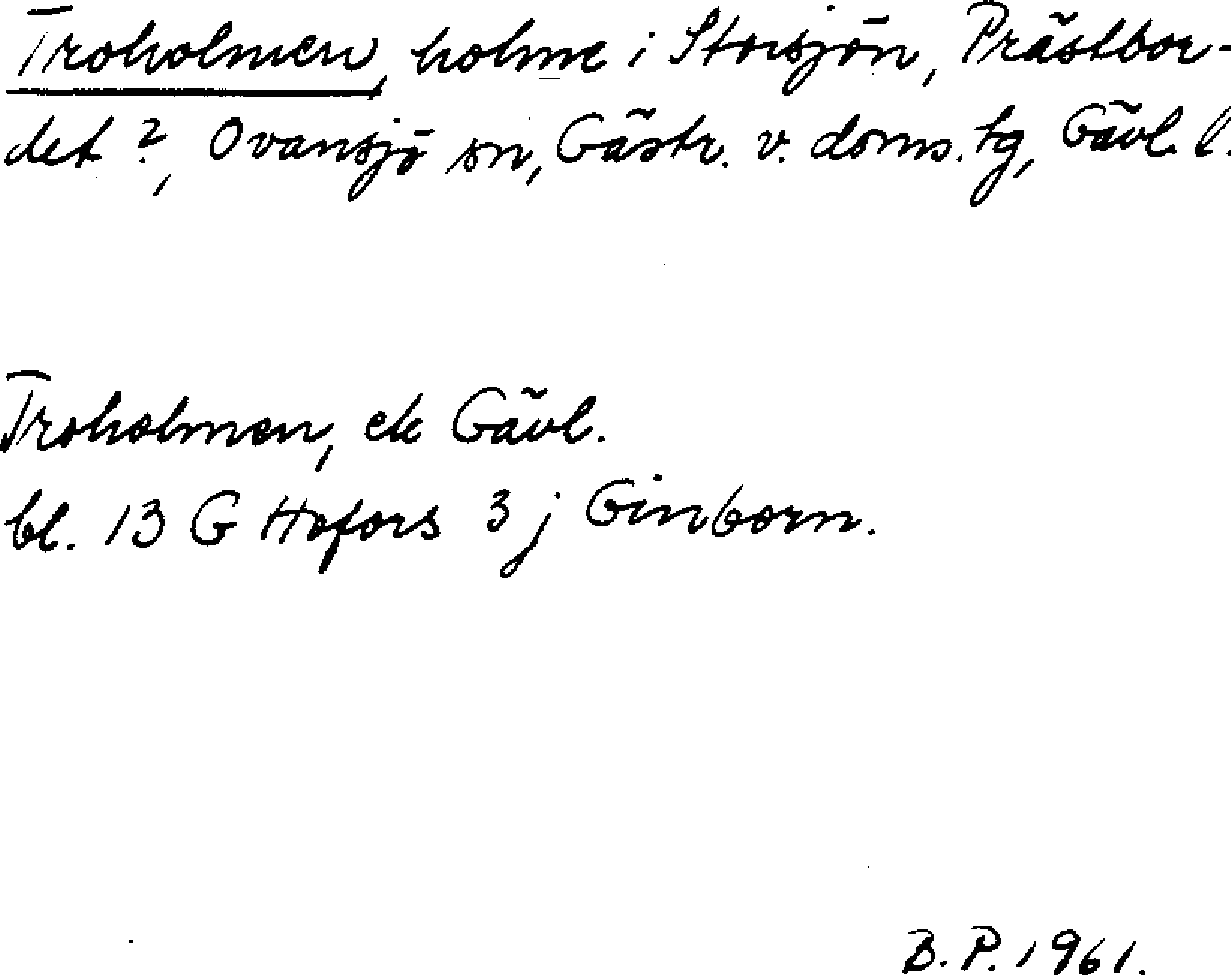 Troholmen, holme i Storsjön, Prästbor-
det?, Ovansjö sn, Gästr. v. doms. tg, Gävl. l.
Troholmen, ek Gävl.
bl. 13 G Hofors 3 j Ginborn.
B. P. 1961.